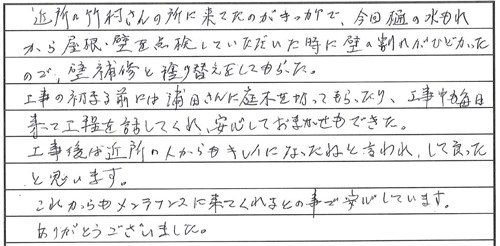 近所の竹村さんの所に来てたのがきっかけで、今回樋の水もれ
から屋根・壁を点検していただいた時に壁の割れがひどかった
ので、壁補修と塗り替えをしてもらった。
工事の初まる前には浦田さんに庭木を切ってもらったり、工事中も毎日
来て工程を話してくれ、安心しておまかせもできた。
工事後は近所の人からもキレイになったねと言われ、して良った
と思います。
これからもメンテナンスに来てくれるとの事で安心しています。
ありがとうございました。